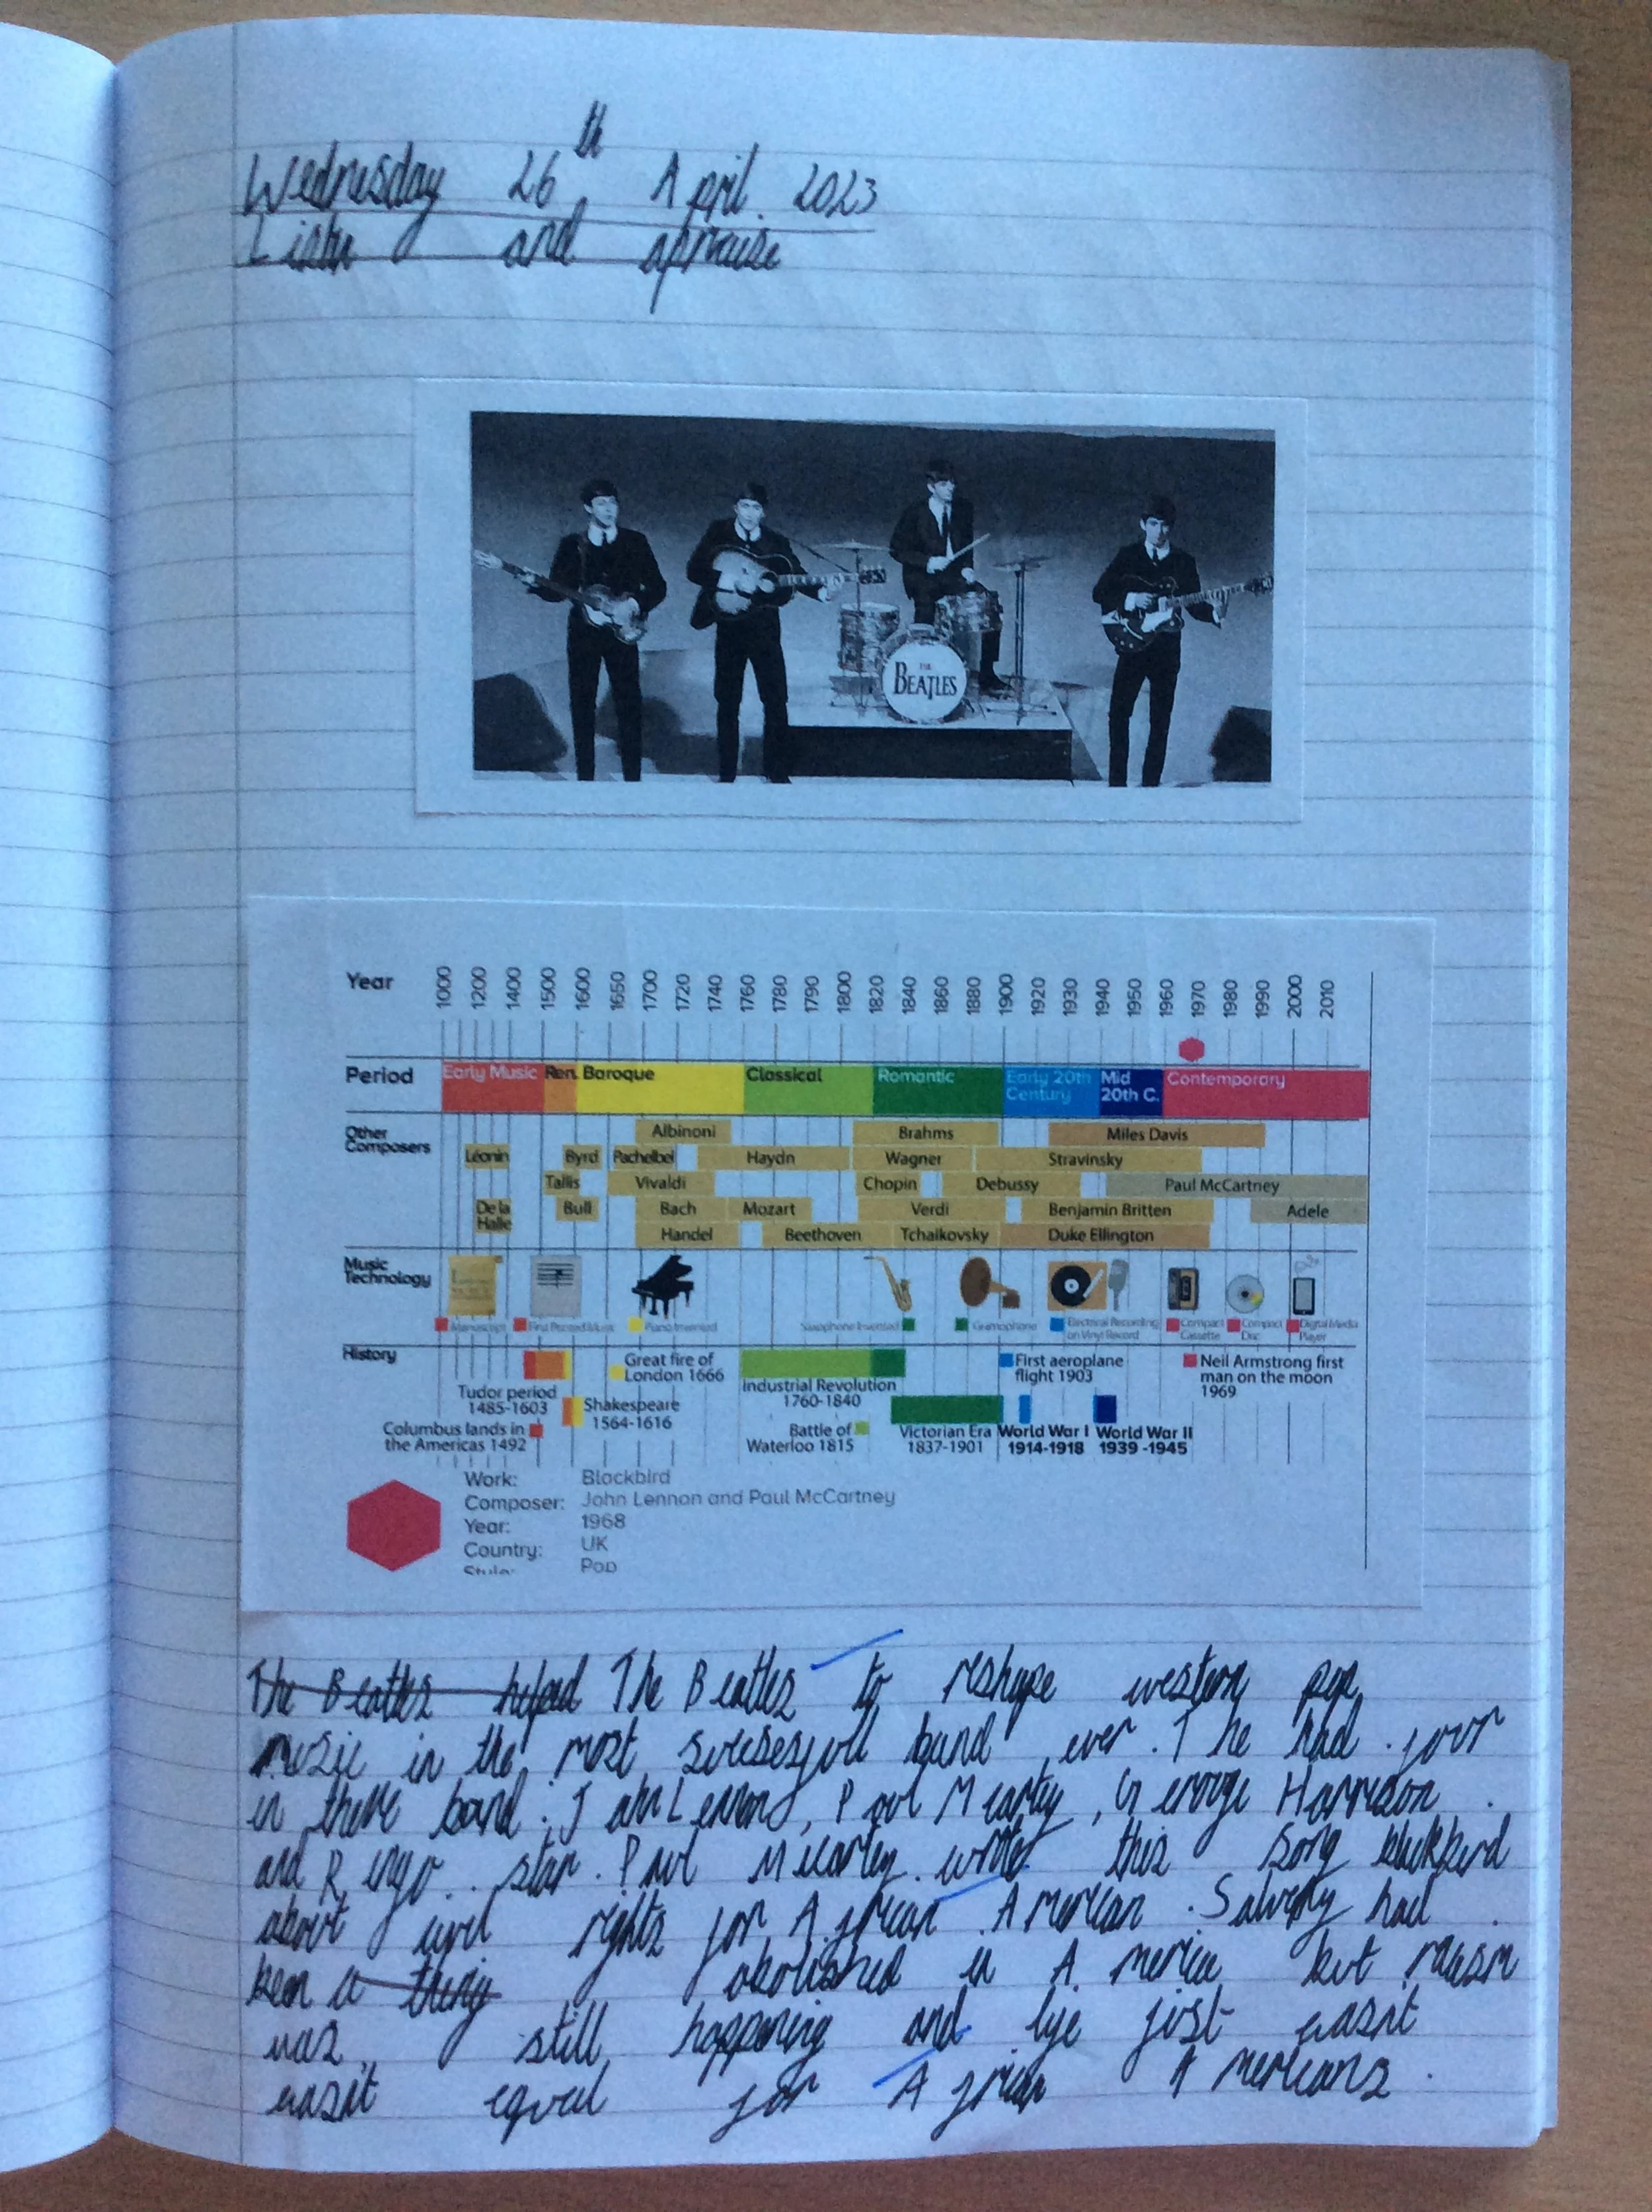 Wednesday 26th April 2023
Listen and apraise
THE
BEATLES
Year 1000 1200 1400 1500 1600 1650 1700 1720 1740 1760 1780 1790 1800 1820 1840 1860 1880 1900 1920 1930 1940 1950 1960 1970 1980 1990 2000 2010
Period Early Music Ren. Baroque Classical Romantic Early 20th Century Mid 20th C. Contemporary
Other Composers
Albinoni Brahms Miles Davis
Léonin Byrd Pachelbel Haydn Wagner Stravinsky
Tallis Vivaldi Chopin Debussy Paul McCartney
De la Halle Bull Bach Mozart Verdi Benjamin Britten Adele
Handel Beethoven Tchaikovsky Duke Ellington
Music Technology
Manuscript First Printed Music Piano Invented Saxophone Invented Gramophone Electrical Recording on Vinyl Record Compact Cassette Compact Disc Digital Media Player
History
Tudor period 1485-1603
Columbus lands in the Americas 1492
Shakespeare 1564-1616
Great fire of London 1666
Industrial Revolution 1760-1840
Battle of Waterloo 1815
Victorian Era 1837-1901
First aeroplane flight 1903
World War I 1914-1918
World War II 1939 -1945
Neil Armstrong first man on the moon 1969
Work: Blackbird
Composer: John Lennon and Paul McCartney
Year: 1968
Country: UK
Style: Pop
The Beatles helped The Beatles to reshape western pop
music in the most sucsesfull band ever. The had four
in there band. John Lennon, Paul Mcartey, George Harrison
and Ringo star. Paul Mcartey wrote this song blackbird
about civil rights for African American. Salvery had
been a thing abolished in America but racism
was still happening and life just wasnt
wasnt equal for African Americans.